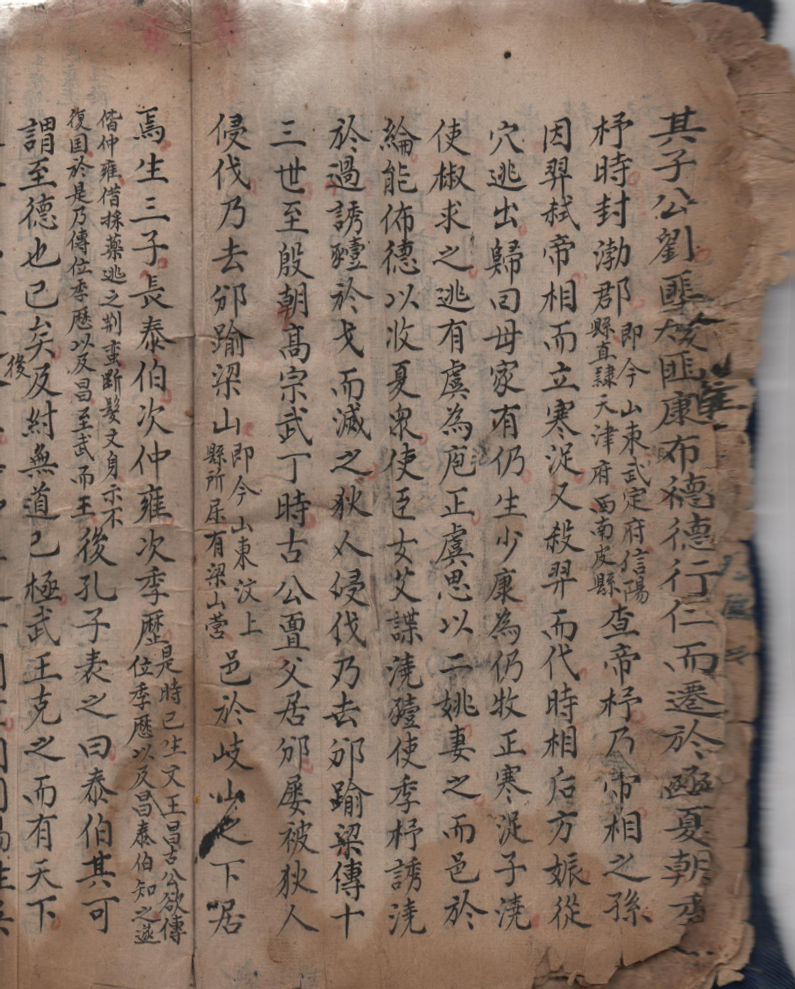 其子公劉匪居匪康布德德行仁而遷於豳夏朝季
杼時封渤郡即今山東武定府信陽縣直隸天津府西南皮縣查帝杼乃帝相之孫
因羿弒帝相而立寒浞又殺羿而代時相后方娠從
穴逃出歸曰母家有仍生少康為仍牧正寒浞子澆
使椒求之逃有虞為庖正虞思以二姚妻之而邑於
綸能佈德以收夏眾使臣女艾諜澆豷使季杼誘澆
於過誘豷於戈而滅之狄人侵伐乃去邠踰梁傳十
三世至殷朝高宗武丁時古公亶父居邠屡被狄人
侵伐乃去邠踰梁山即今山東汶上縣所屈有梁山营邑於岐山之下居
焉生三子長泰伯次仲雍次季歷是時已生文王昌古公欲傳位季歷以及昌泰伯知之遂
偕仲雍借採藥逃之荆蛮断髮文身示不復囯於是乃傳位季歷以及昌至武而王後孔子表之曰泰伯其可
謂至德也已矣及後紂無道已極武王克之而有天下